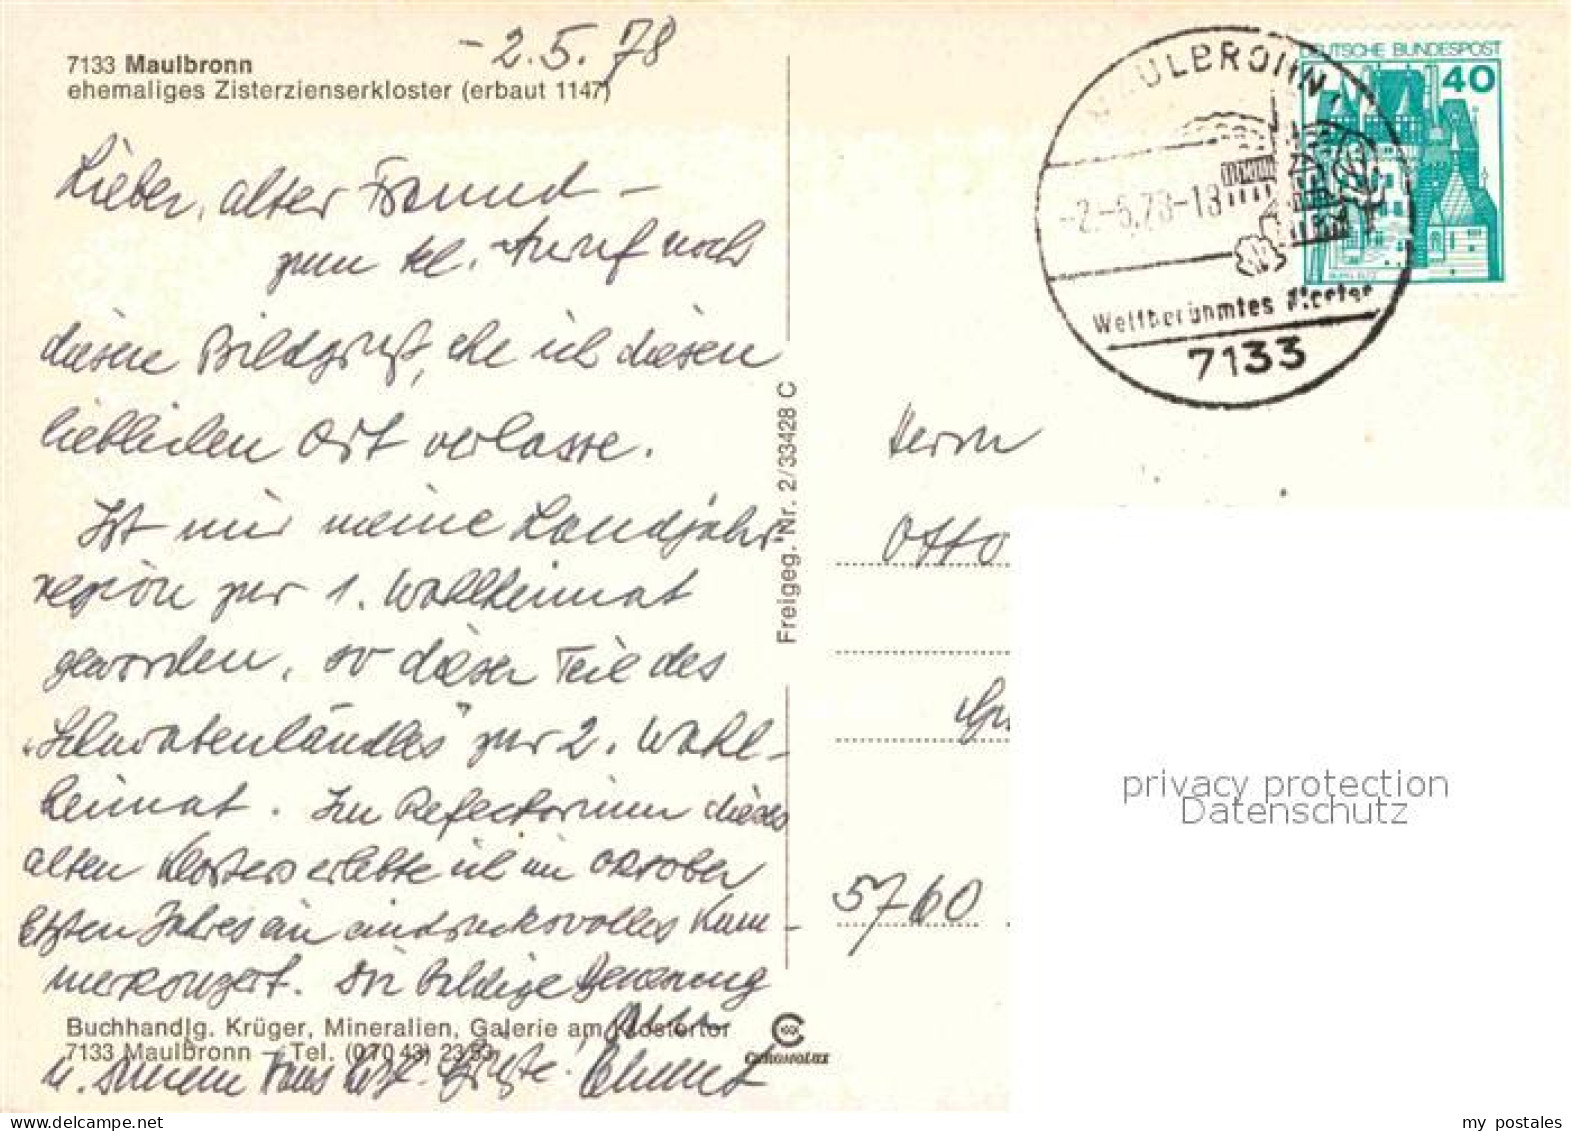 - 2.5.78
7133 Maulbronn
ehemaliges Zisterzienserkloster (erbaut 1147)
Lieber, alter Freund –
zum tel. Anruf noch
diesen Bildgruß, ehe ich diesen
lieblichen Ort verlasse.
Ist mir meine Landjahr-
region zur 1. Wahlheimat
geworden, so dieser Teil des
"Schwabenländles" zur 2. Wahl-
heimat. Im Refectorium dieses
alten Klosters erlebte ich im Oktober
letzten Jahres ein eindrucksvolles Kam-
merkonzert. Dir baldige Genesung
u. Deinem Haus herzl. Grüße!
Buchhandlg. Krüger, Mineralien, Galerie am Klostertor
7133 Maulbronn – Tel. (0 70 43) 23 53
Freigeg. Nr. 2/33428 C
MAULBRONN
DEUTSCHE BUNDESPOST
40
-2.-5.78-18
Weltberühmtes Kloster
7133
Herrn
Otto
5760
privacy protection
Datenschutz
my postales